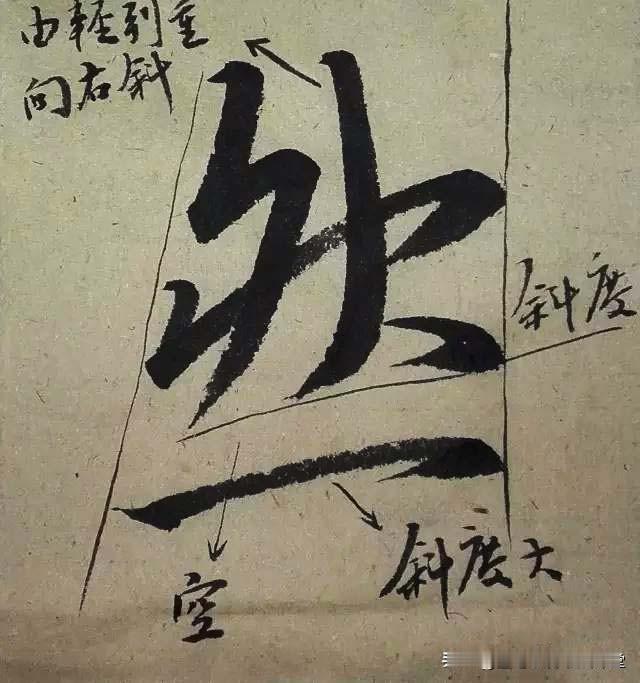 由輕到重
向右斜
斜度
斜度大
空